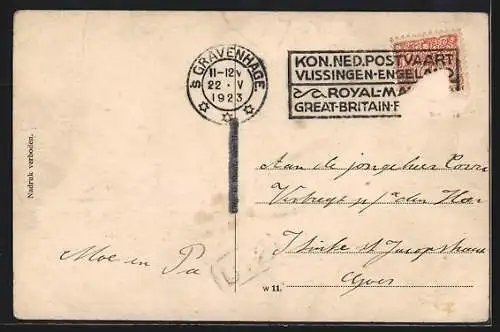 'S GRAVENHAGE
11-12V
22 · V
1923
KON. NED. POSTVAART
VLISSINGEN-ENGELAND
ROYAL-MA
GREAT-BRITAIN-F
Nadruk verboden.
Aan de jongeheer
p/a den Heer
St Jacopstraat
Goes
Moe en Pa
W 11.